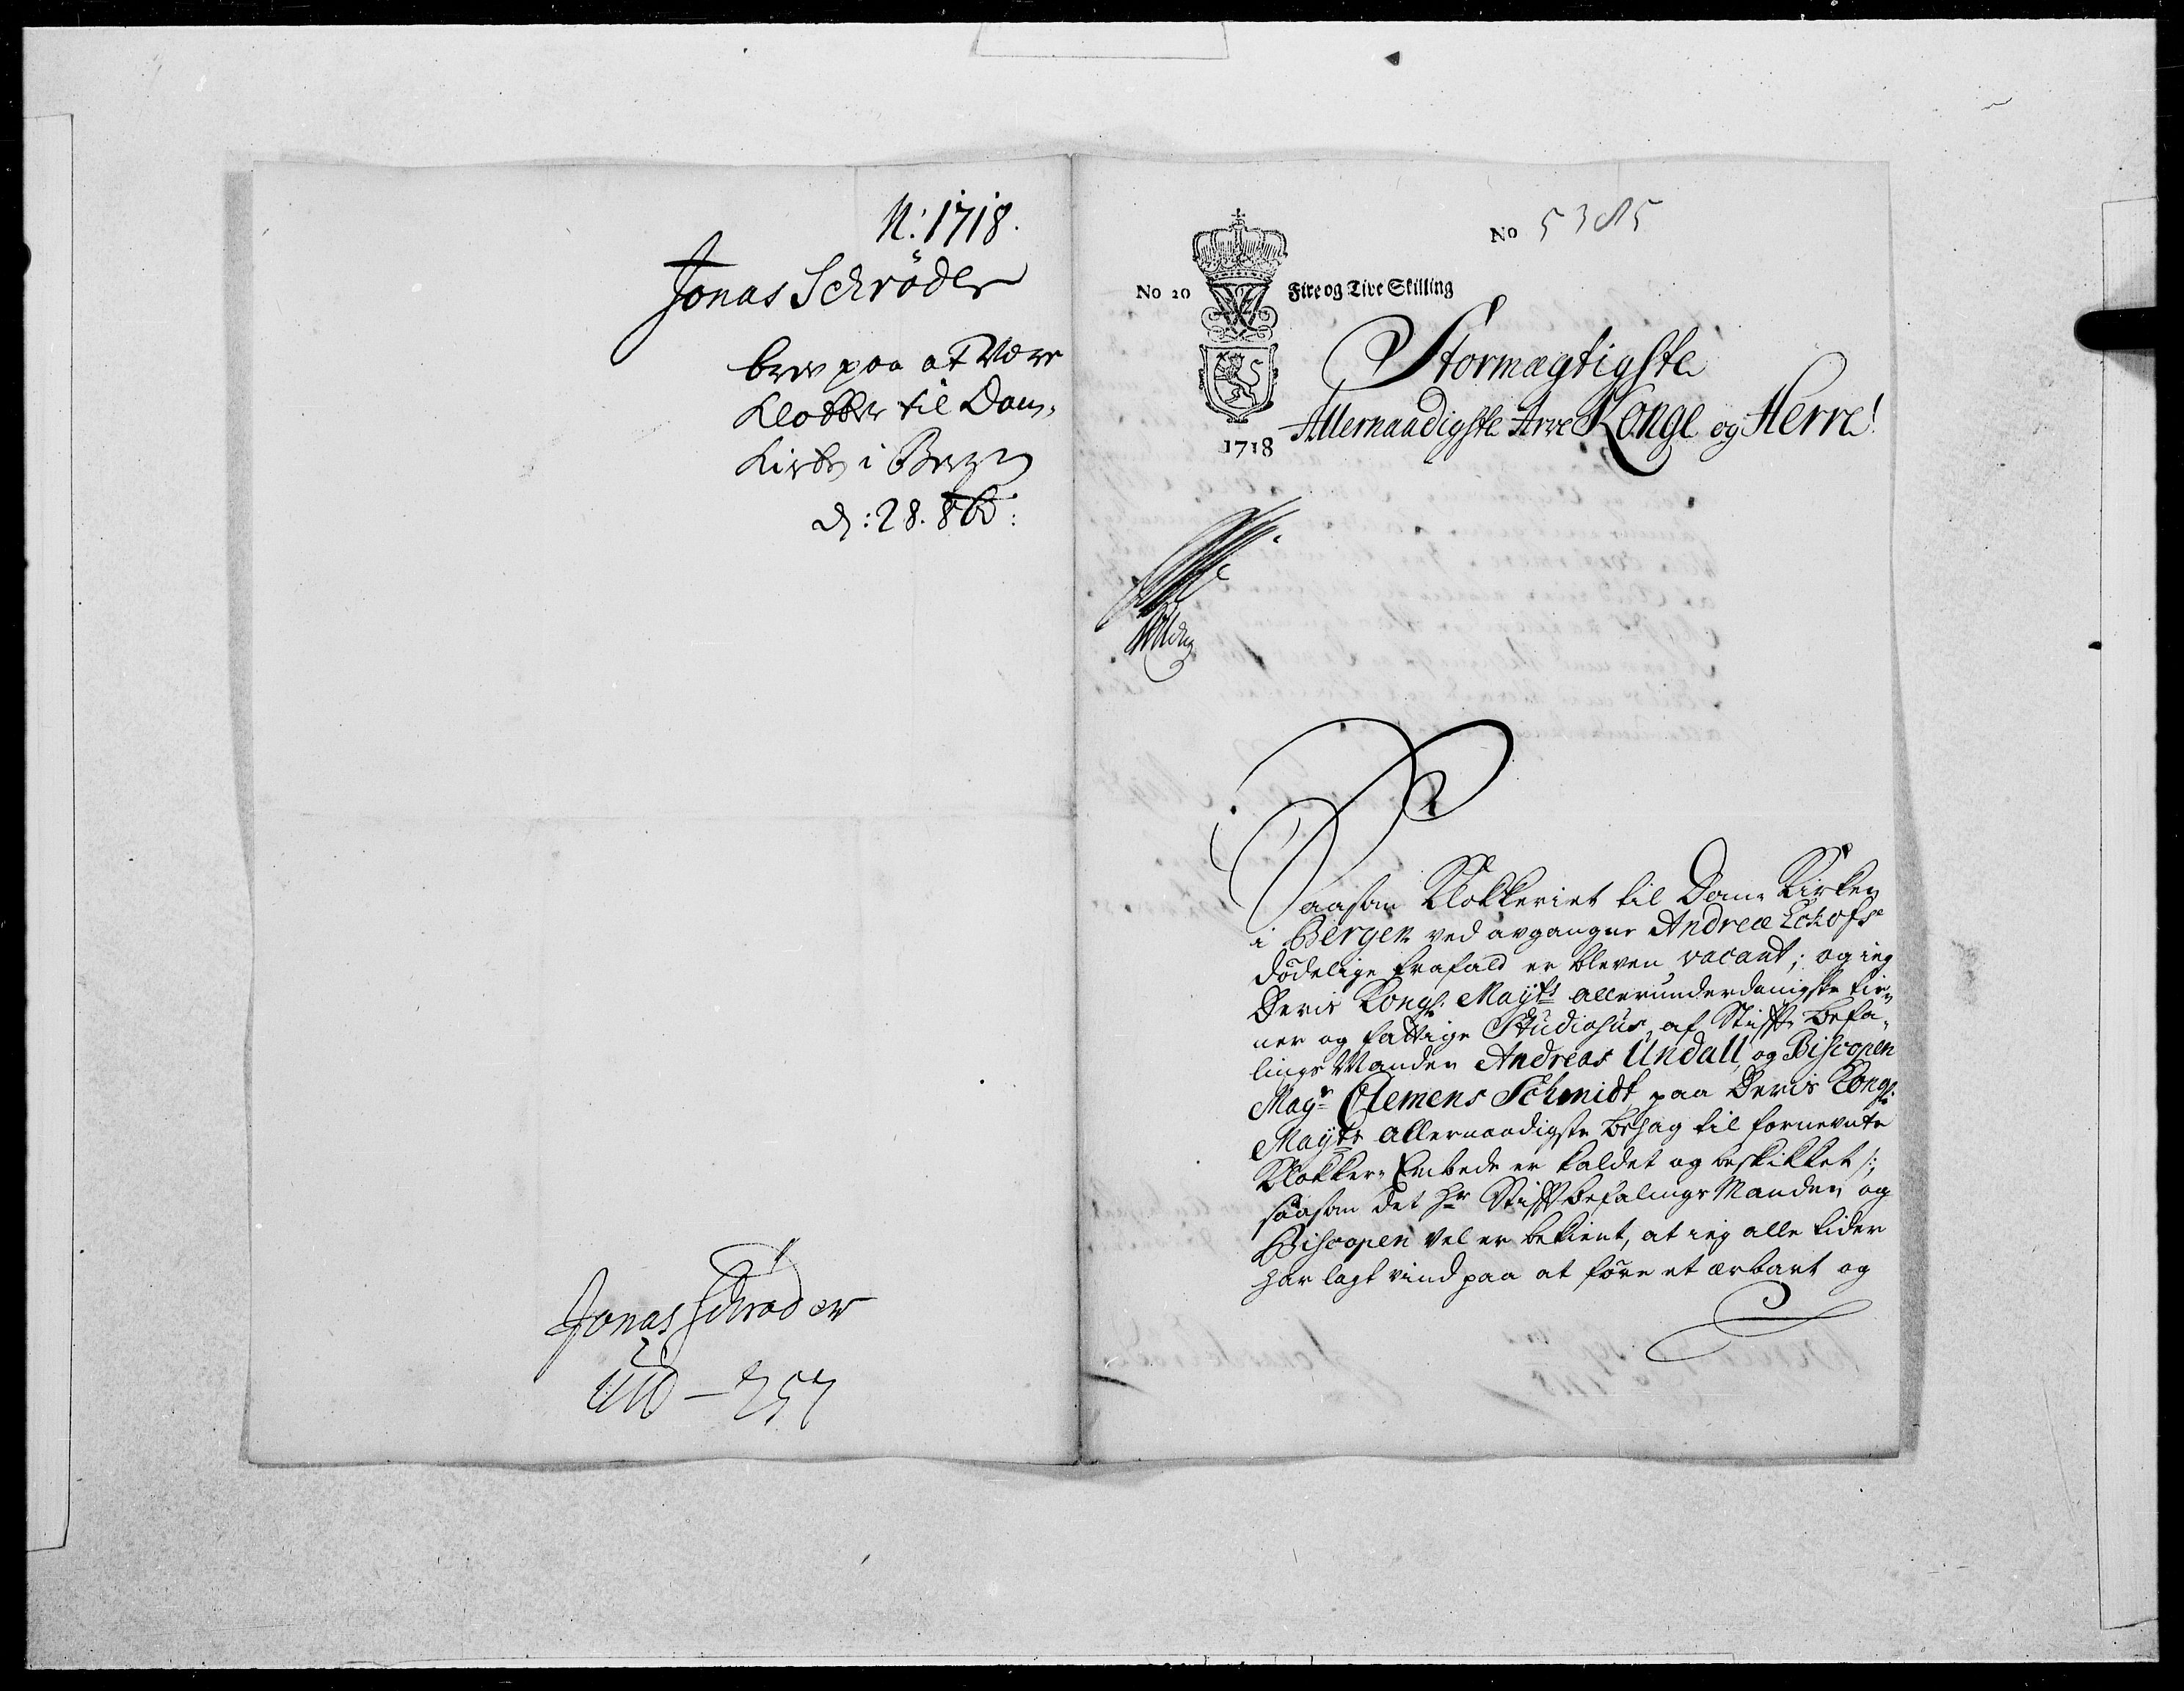 N: 1718.
Jonas Schröder
brev paa at være
Klokker til Dom-
Kirken i Bergen
d: 28. 8b:
Jonas Schrøder
Und – 257
No 5385
No 20 Fire og Tive Skilling
1718
Stormægtigste
Allernaadigste Arve Konge og Herre!
Saasom Klokkeriet til Dom Kirken
i Bergen ved afgangne Andreæ Eckofs
dødelige frafald er bleven vacant; og ieg
Deris Kongl. Mayts allerunderdanigste tie-
ner og fattige Studiosus, af Stifft befa-
lings Manden Andreas Undall og Biscopen
Magr Clemens Schmidt paa Deris Kongl.
Mayts allernaadigste behag til fornevnte
Klokker-Embede er kaldet og beskikket /:
saasom det Hr Stifftbefalings Manden og
Biscopen vel er bekient, at ieg alle tider
har lagt vind paa at føre et ærbart og